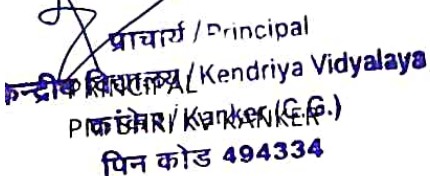 प्राचार्य / Principal
केन्द्रीय विद्यालय / Kendriya Vidyalaya
PRINCIPAL
कांकेर / Kanker (C.G.)
PM SHRI KV KANKER
पिन कोड 494334